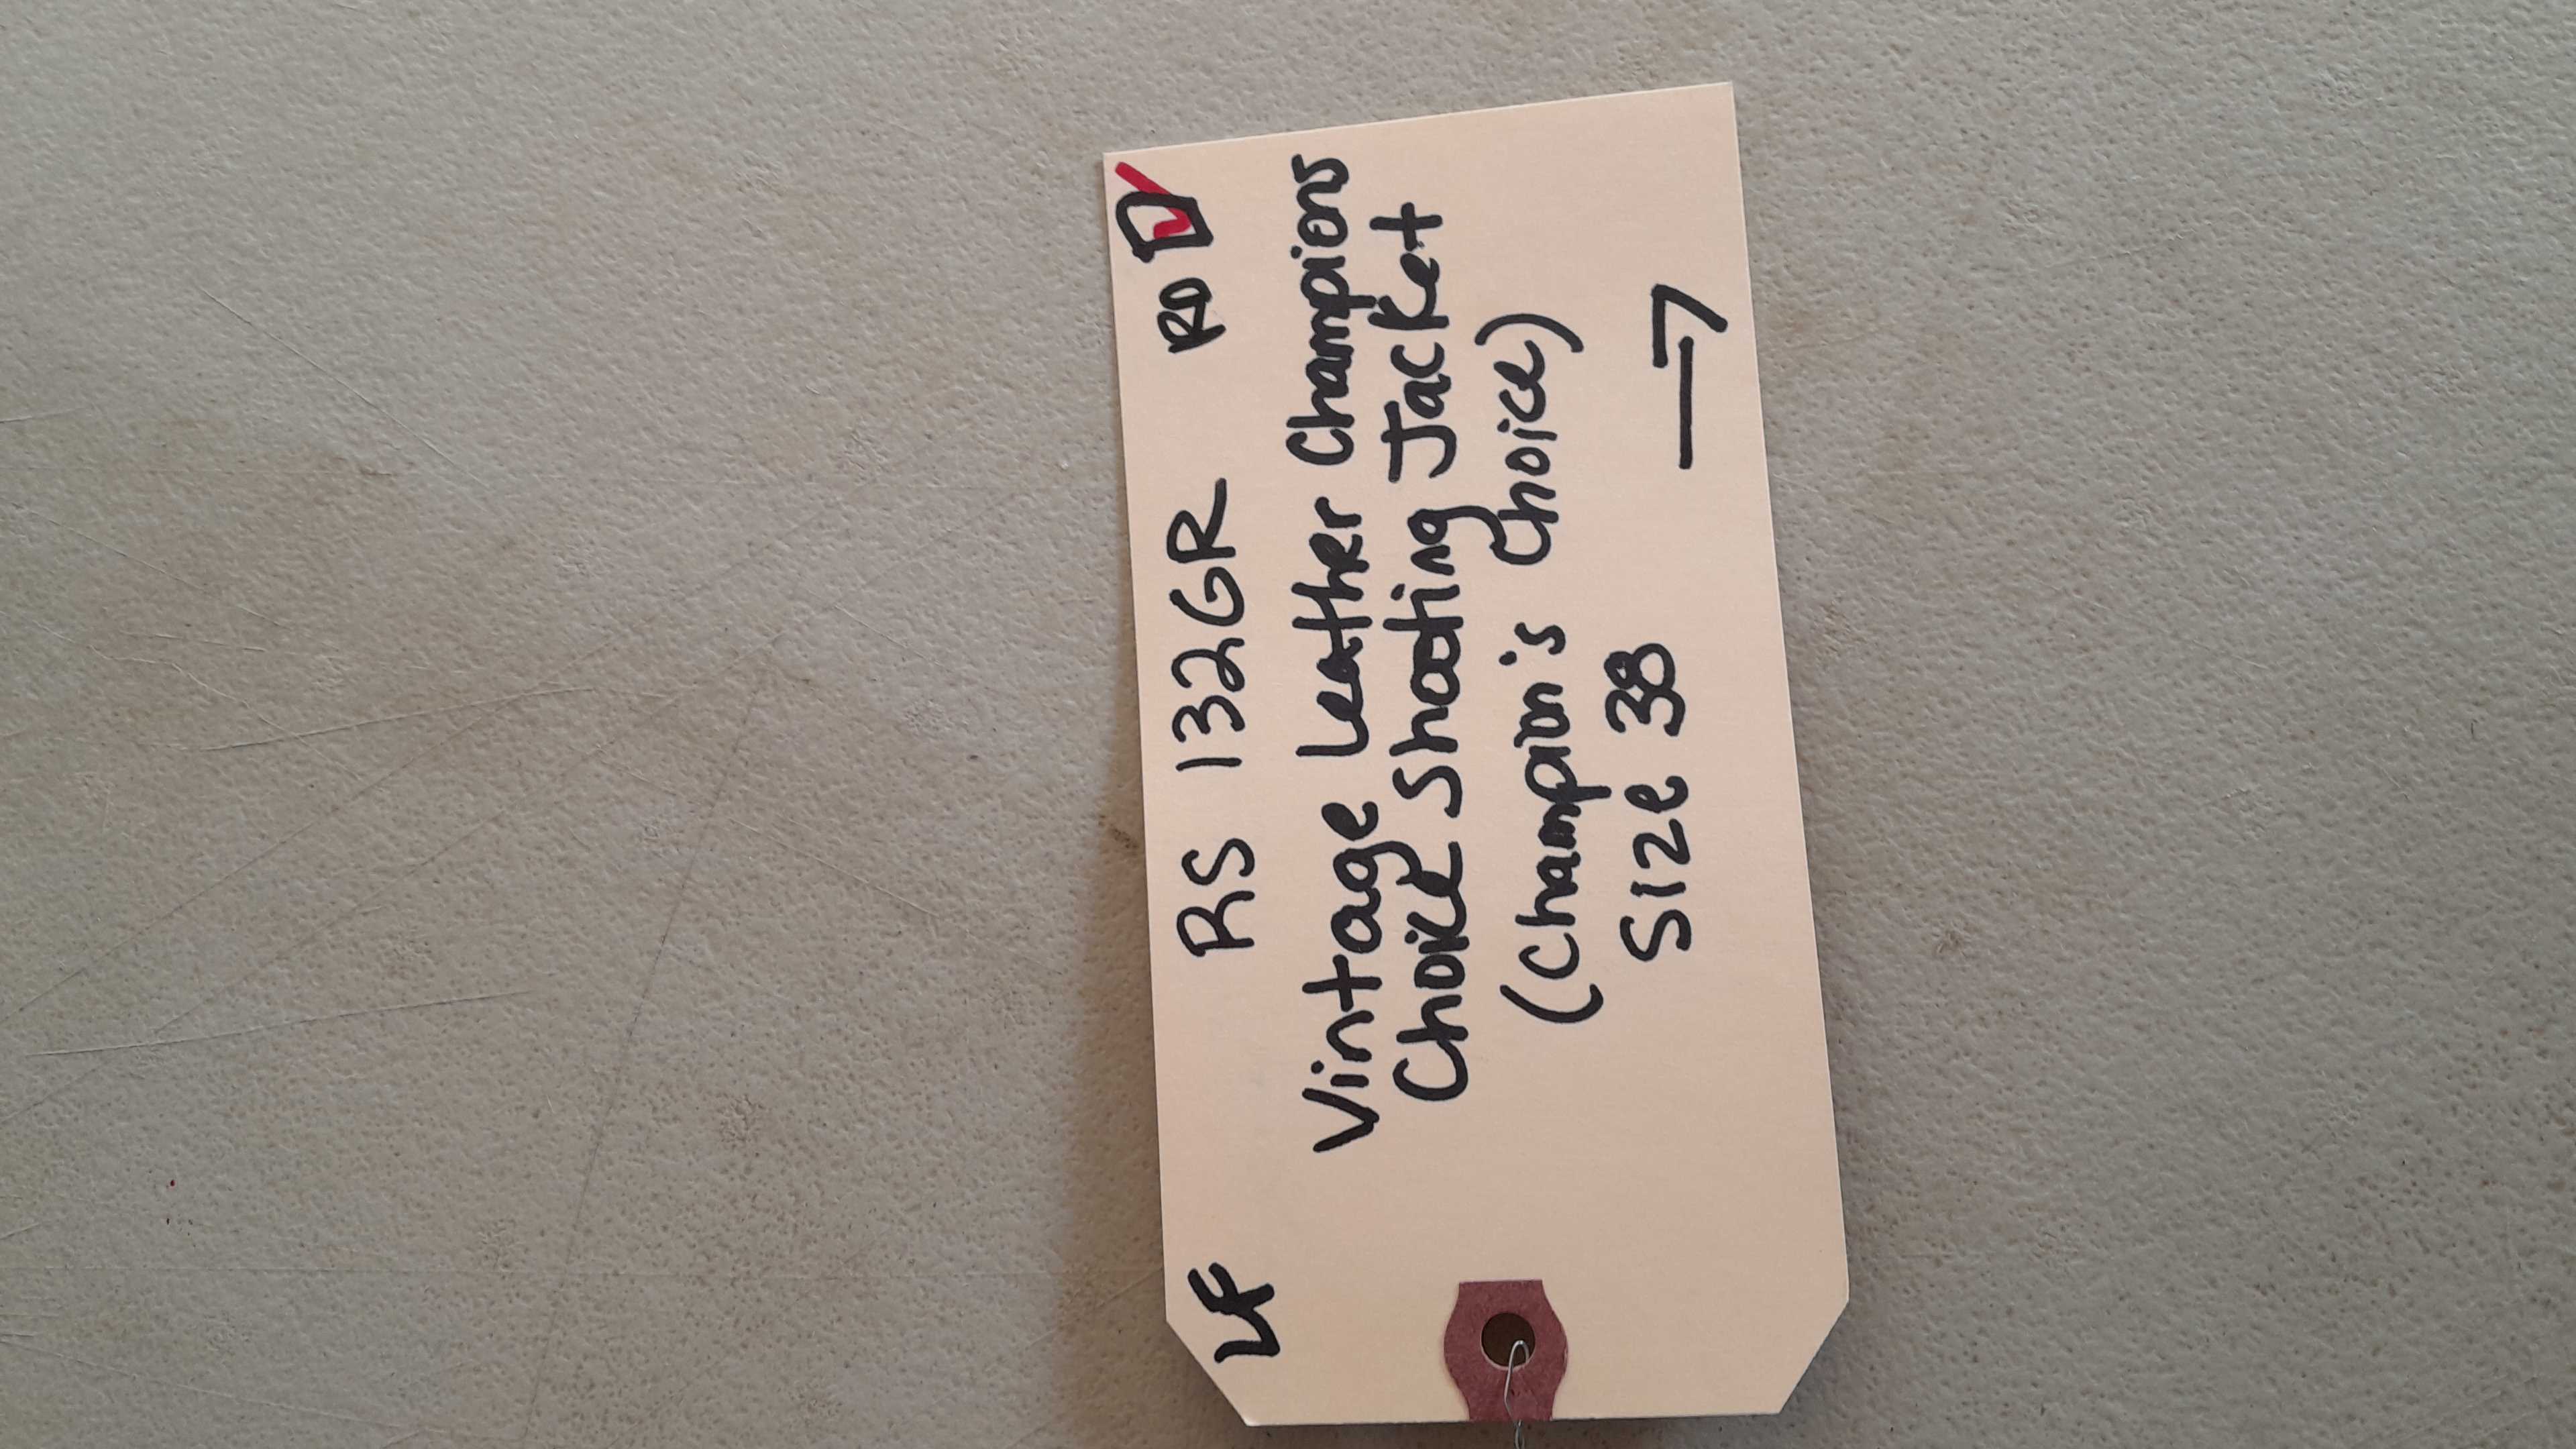 LF RS 132GR RD
Vintage Leather Champions
Choice Shooting Jacket
(Champion's Choice)
Size 38